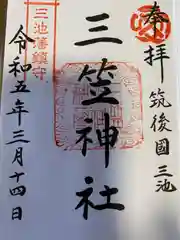 奉拝
筑後國三池
三池藩鎮守
三笠神社
令和五年三月十四日